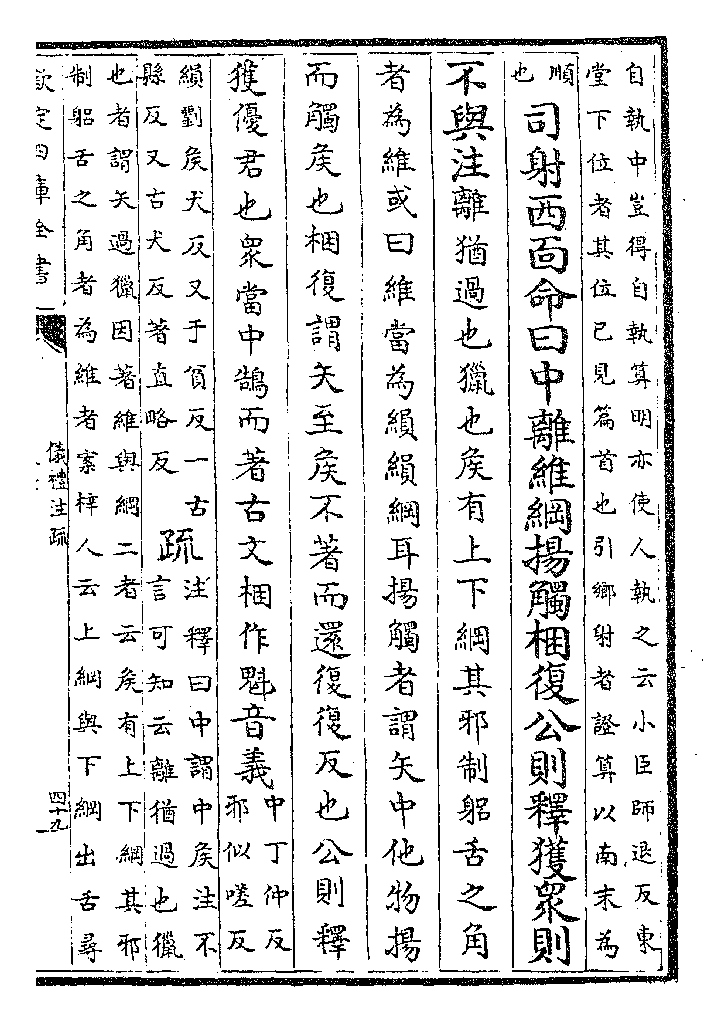 自執中豈得自執算明亦使人執之云小臣師退反東
堂下位者其位已見篇首也引鄉射者證算以南末為
順
也
司射西面命曰中離維綱揚觸梱復公則釋獲眾則
不與注離猶過也獵也矦有上下綱其邪制躬舌之角
者為維或曰維當為縜縜綱耳揚觸者謂矢中他物揚
而觸矦也梱復謂矢至矦不著而還復復反也公則釋
獲優君也眾當中鵠而著古文梱作魁音義
中丁仲反
邪似嗟反
縜劉矦犬反又于貧反一古
縣反又古犬反著直略反
疏
注釋曰中謂中矦注不
言可知云離猶過也獵
也者謂矢過獵因著維與綱二者云矦有上下綱其邪
制躬舌之角者為維者案梓人云上綱與下綱出舌尋
欽定四庫全書
儀禮注疏
四十九